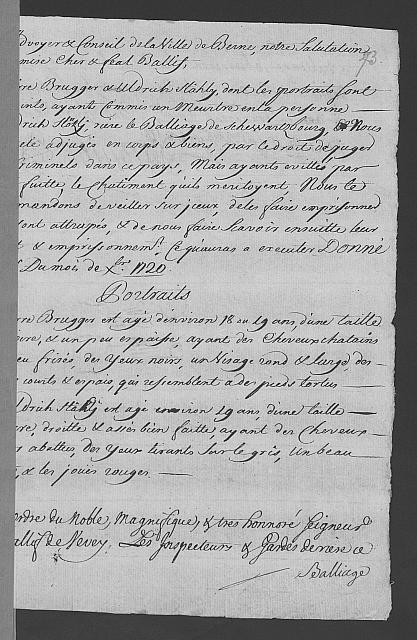 dvoyer & Conseil de la Ville de Berne notre Salutation
mise Cher & feal Ballif,
73
rre Brugger & Uldrich Stähly, dont les portraits sont
ints, ayants commis un Meurtre en la personne
drich Stäly, riere le Balliage de Schewartzbourg, Nous
eté adjugés en corps & biens, par le droit de juger
riminels dans ce pays, Mais ayants évittés par
fuitte, le Chatiment qu'ils meritoyent, Nous te
mandons de veiller sur jceux, de les faire emprisonner
ont attrapés, & de nous faire Scavoir ensuitte leur
& emprisonnem.t, Ce qu'auras a executer DONNÉ
Du mois de Xbr. 1720.
Portraits
rre Brugger est agé d'environ 18 ou 19 ans, d'une taille
& un peu espaisse, ayant des Cheveux chatains
eu frisés, des Yeux noirs, un Visage rond & large, des
courts & espais, qui ressemblent a des pieds tortus
ldrich Stähly est agé environ 19 ans, d'une taille
re, droitte & assés bien faitte, ayant des Cheveux
abattus, des Yeux tirants Sur le gris, Un beau
, & les joües rouges.
ordre du Noble, Magnifique, & tres honnoré Seigneur
allif de Vevey, Les Inspecteurs & Gardes derriere ce
Balliage